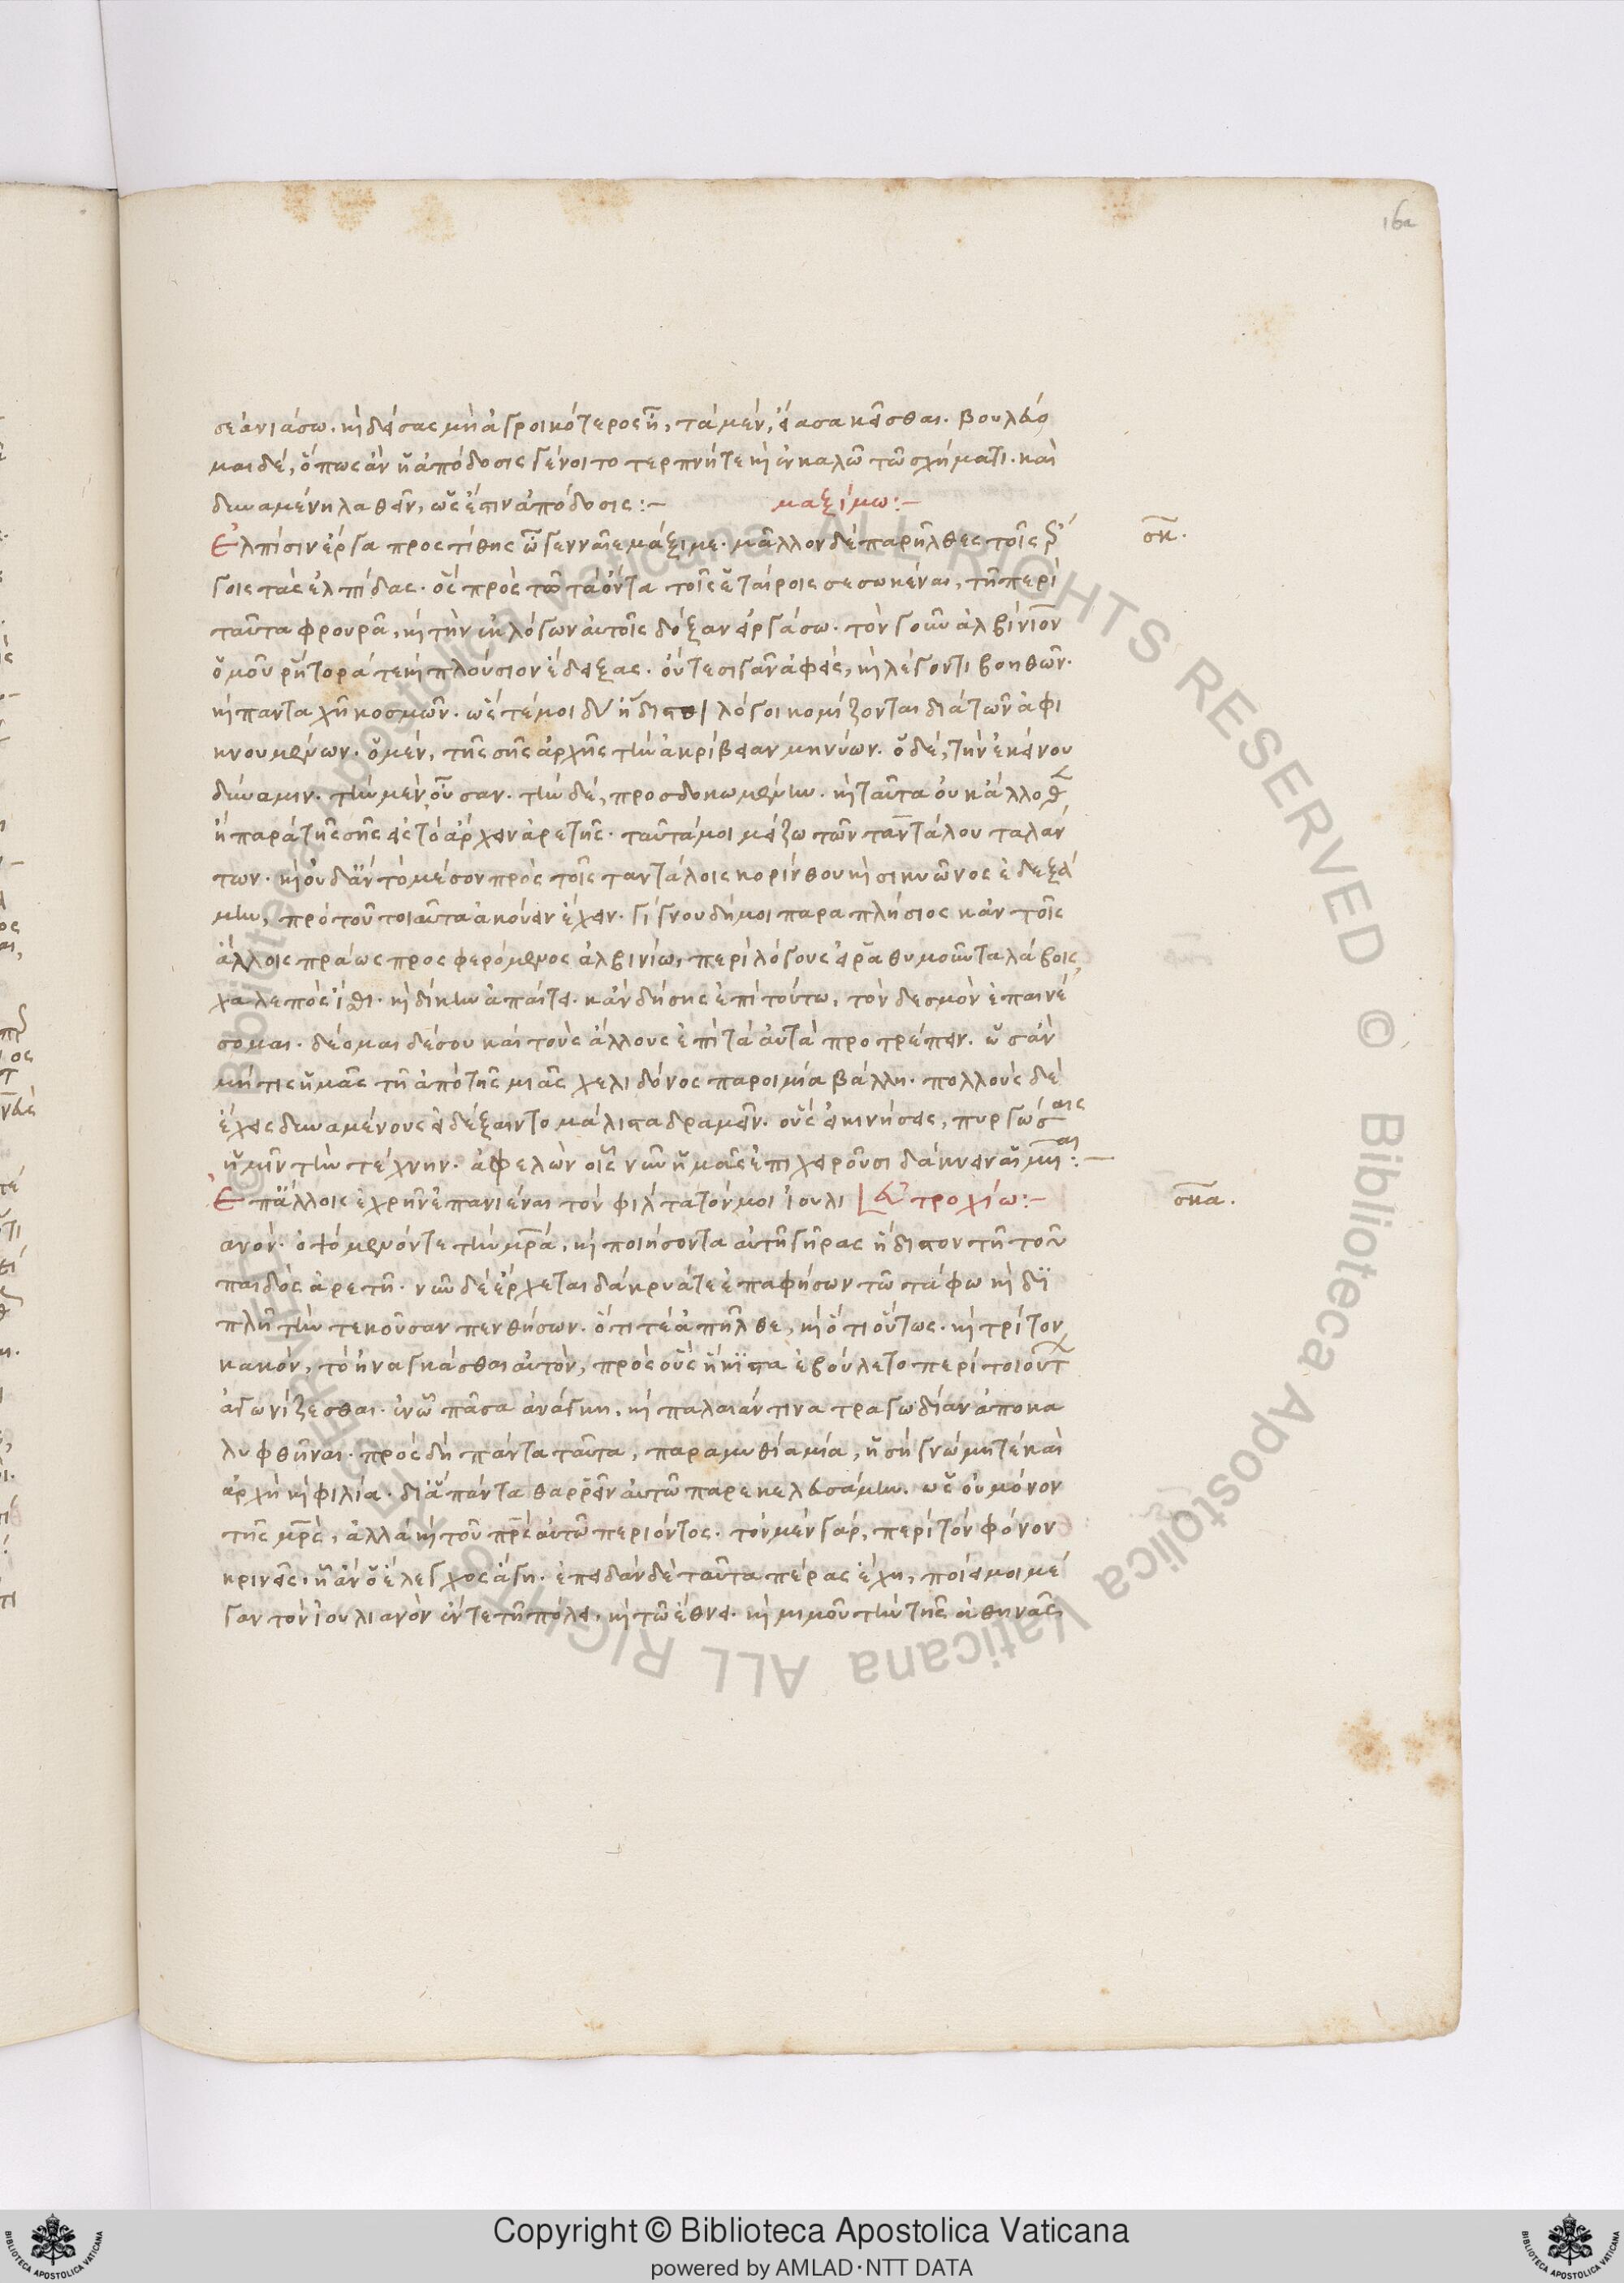 162
σε ἀνιάσω. καὶ δείσας μὴ ἀγροικότερος ᾖ, τὰ μὲν, εἴασα κεῖσθαι. βουλεύο
μαι δέ, ὅπως ἂν ἡ ἀπόδοσις γένοιτο τερπνή τε καὶ ἐν καλῶ τῶ σχήματι. καὶ
δυναμένη λαθεῖν, ὡς ἔστιν ἀπόδοσις :– μαξίμω :–
Ἐλπίσιν ἔργα προστίθης ὦ γενναῖε μάξιμε. μᾶλλον δὲ παρῆλθες τοῖς ἔρ σκ.
γοις τὰς ἐλπίδας. ὅς πρὸς τῶ τὰ ὄντα τοῖς ἑταίροις σεσωκέναι, τῆ περὶ
ταῦτα φρουρᾶ, καὶ τὴν ἐκ λόγων αὐτοῖς δόξαν ἐργάσω. τὸν γοῦν ἀλβίνιον
ὁμοῦ ῥήτορά τε καὶ πλούσιον ἔδειξας. οὔτε σιγᾶν ἀφείς, καὶ λέγοντι βοηθῶν.
καὶ πανταχῆ κοσμῶν. ὥστέ μοι δύ' ἥδιστοι λόγοι κομίζονται διὰ τῶν ἀφι
κνουμένων. ὁ μέν, τῆς σῆς ἀρχῆς τὴν ἀκρίβειαν μηνύων. ὁ δέ, τὴν ἐκείνου
δύναμιν. τὴν μὲν οὖσαν. τὴν δέ, προσδοκωμένην. καὶ ταῦτα οὐκ ἄλλοθεν
ἢ παρὰ τῆς σῆς ἐς τὸ ἄρχειν ἀρετῆς. ταῦτά μοι μείζω τῶν ταντάλου ταλάν
των. καὶ οὐδ' ἂν τὸ μέσον πρὸς τοῖς ταντάλοις κορίνθου καὶ σικυῶνος ἐδεξά
μην, πρὸ τοῦ τοιαῦτα ἀκούειν ἔχειν. γίγνου δή μοι παραπλήσιος κἀν τοῖς
ἄλλοις πράως προσφερόμενος ἀλβινίω, περὶ λόγους εἰ ῥαθυμοῦντα λάβοις,
χαλεπὸς ἴσθι. καὶ δίκην ἀπαίτει. κἂν δήσης ἐπὶ τούτω, τὸν δεσμὸν ἐπαινέ
σομαι. δέομαι δέ σου καὶ τοὺς ἄλλους ἐπὶ τὰ αὐτὰ προτρέπειν. ὡς ἂν
μή τις ἡμᾶς τῆ ἀπὸ τῆς μιᾶς χελιδόνος παροιμία βάλλη. πολλοὺς δὲ
ἔχεις δυναμένους εἰ δέξαιντο μάλιστα δραμεῖν. οὓς εἰ κινήσεις, πυργώσεις
ἡμῖν τὴν τέχνην. ἀφελὼν οἷς νῦν ἡμᾶς ἐπιχειροῦσι δάκνειν :–
Ἐπ' ἄλλοις ἐχρῆν ἐπανιέναι τὸν φίλτατόν μοι ἰουλι εὐτροχίω :– σκα.
ανόν. ὀψόμενόν τε τὴν μητέρα, καὶ ποιήσοντα αὐτῆ γῆρας ἥδιστον τῆ τοῦ
παιδὸς ἀρετῆ. νῦν δὲ ἔρχεται δάκρυά τε ἐπαφήσων τῶ τάφω καὶ δι
πλῆ τὴν τεκοῦσαν πενθήσων. ὅτι τε ἀπῆλθε, καὶ ὅτι οὕτως. καὶ τρίτον
κακόν, τὸ ἠναγκάσθαι αὐτόν, πρὸς οὓς ἥκιστα ἐβούλετο περὶ τοιούτων
ἀγωνίζεσθαι. ἐν ᾧ πᾶσα ἀνάγκη, καὶ παλαιάν τινα τραγωδίαν ἀποκα
λυφθῆναι. πρὸς δὴ πάντα ταῦτα, παραμυθία μία, ἡ σὴ γνώμη τε καὶ
ἀρχὴ καὶ φιλία. δι' ἃ πάντα θαρρεῖν αὐτῶ παρεκελευσάμην. ὡς οὐ μόνον
τῆς μητρὸς, ἀλλὰ καὶ τοῦ πατρὸς αὐτῶ περιόντος. τὸν μὲν γάρ, περὶ τὸν φόνον
κρινεῖς. ἧ ἂν ὁ ἔλεγχος ἄγη. ἐπειδὰν δὲ ταῦτα πέρας ἔχη, ποίει μοι μέ
γαν τὸν ἰουλιανὸν ἔν τε τῆ πόλει, καὶ τῶ ἔθνει. καὶ μιμοῦ τὴν τῆς ἀθηνᾶς
© Biblioteca Apostolica Vaticana ALL RIGHTS RESERVED © Biblioteca Apostolica Vaticana ALL RIGHTS RESERVED
Copyright © Biblioteca Apostolica Vaticana
powered by AMLAD·NTT DATA
BIBLIOTECA APOSTOLICA VATICANA
BIBLIOTECA APOSTOLICA VATICANA